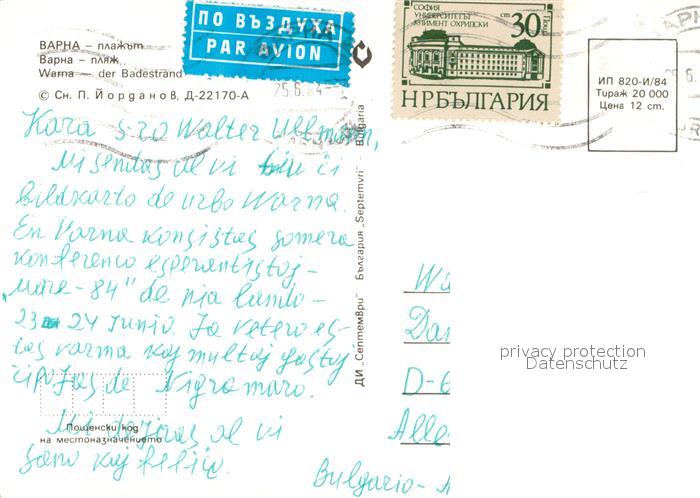 ВАРНА – плажът
Варна – пляж
Warna – der Badestrand
© Сн. П. Йорданов, Д-22170-А
ПО ВЪЗДУХА
PAR AVION
СОФИЯ
УНИВЕРСИТЕТЪТ
КЛИМЕНТ ОХРИДСКИ
30 ст
ПОЩА
НРБЪЛГАРИЯ
25.6.84
ИП 820-И/84
Тираж 20 000
Цена 12 ст.
Kara s-ro Walter Ullmann,
Mi sendas al vi ĉi
bildkarto de urbo Warna.
En Varna konsistas somera
konferenco esperantistoj –
„Mare - 84" de nia lando –
23 24 Junio. Ja vetero es-
tas varma kaj multaj gastoj
ĝojas de Nigra maro.
Mi deziras al vi
sano kaj feliĉo.
Bulgario-
ДИ „Септември" България „Septemvri" Bulgaria
Пощенски код
на местоназначението
D-6
privacy protection
Datenschutz